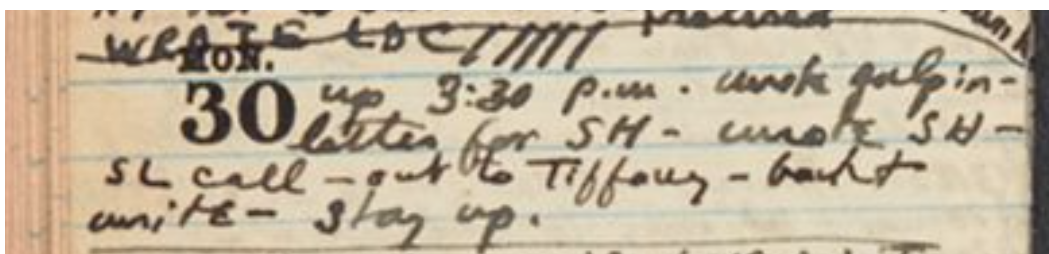 WROTE LDC /////
MON.
30 up 3:30 p.m. wrote Galpin-
letter for SH - wrote SH -
SL call - out to Tiffany - back &
write - stay up.